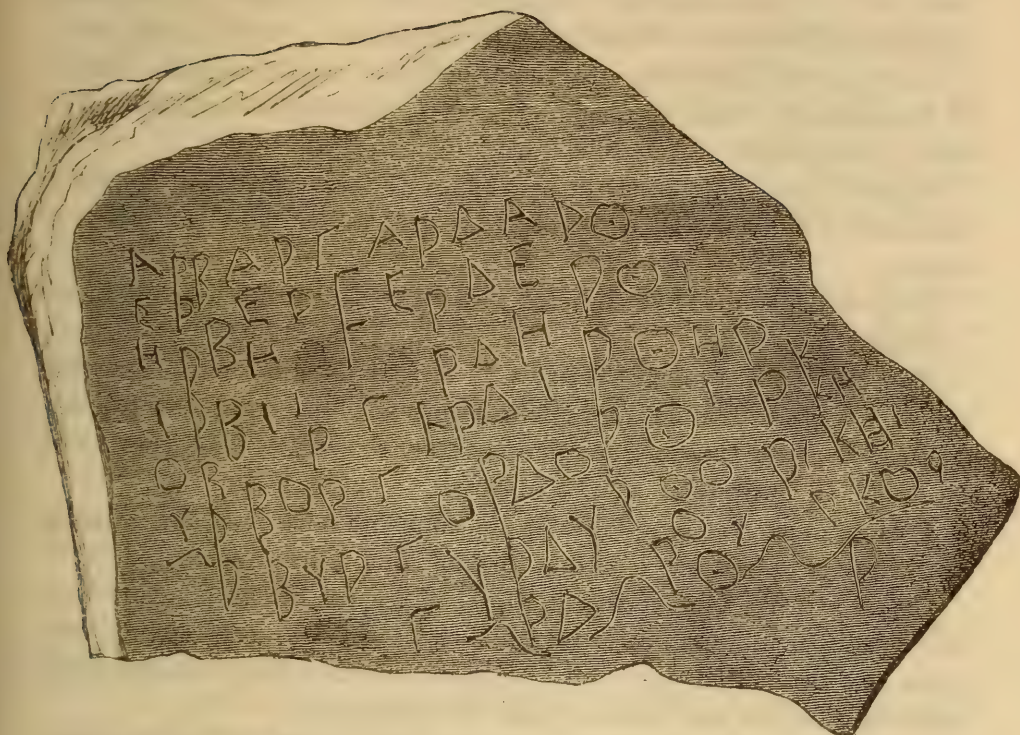 ΑΡΒΑΡΓΑΡΔΑΡΘ
ΕΡΒΕΡΓΕΡΔΕΡΘΙ
ΗΡΒΗΓΡΔΗΡΘΗΡΚ
ΙΡΒΙΡΓΙΡΔΙΡΘΙΡΚΗ
ΟΡΒΟΡΓΟΡΔΟΡΘΟΡΚΗΙ
ΥΡΒΥΡΓΥΡΔΥΡΘΥΡΚΟΡ
ΓΡΔ